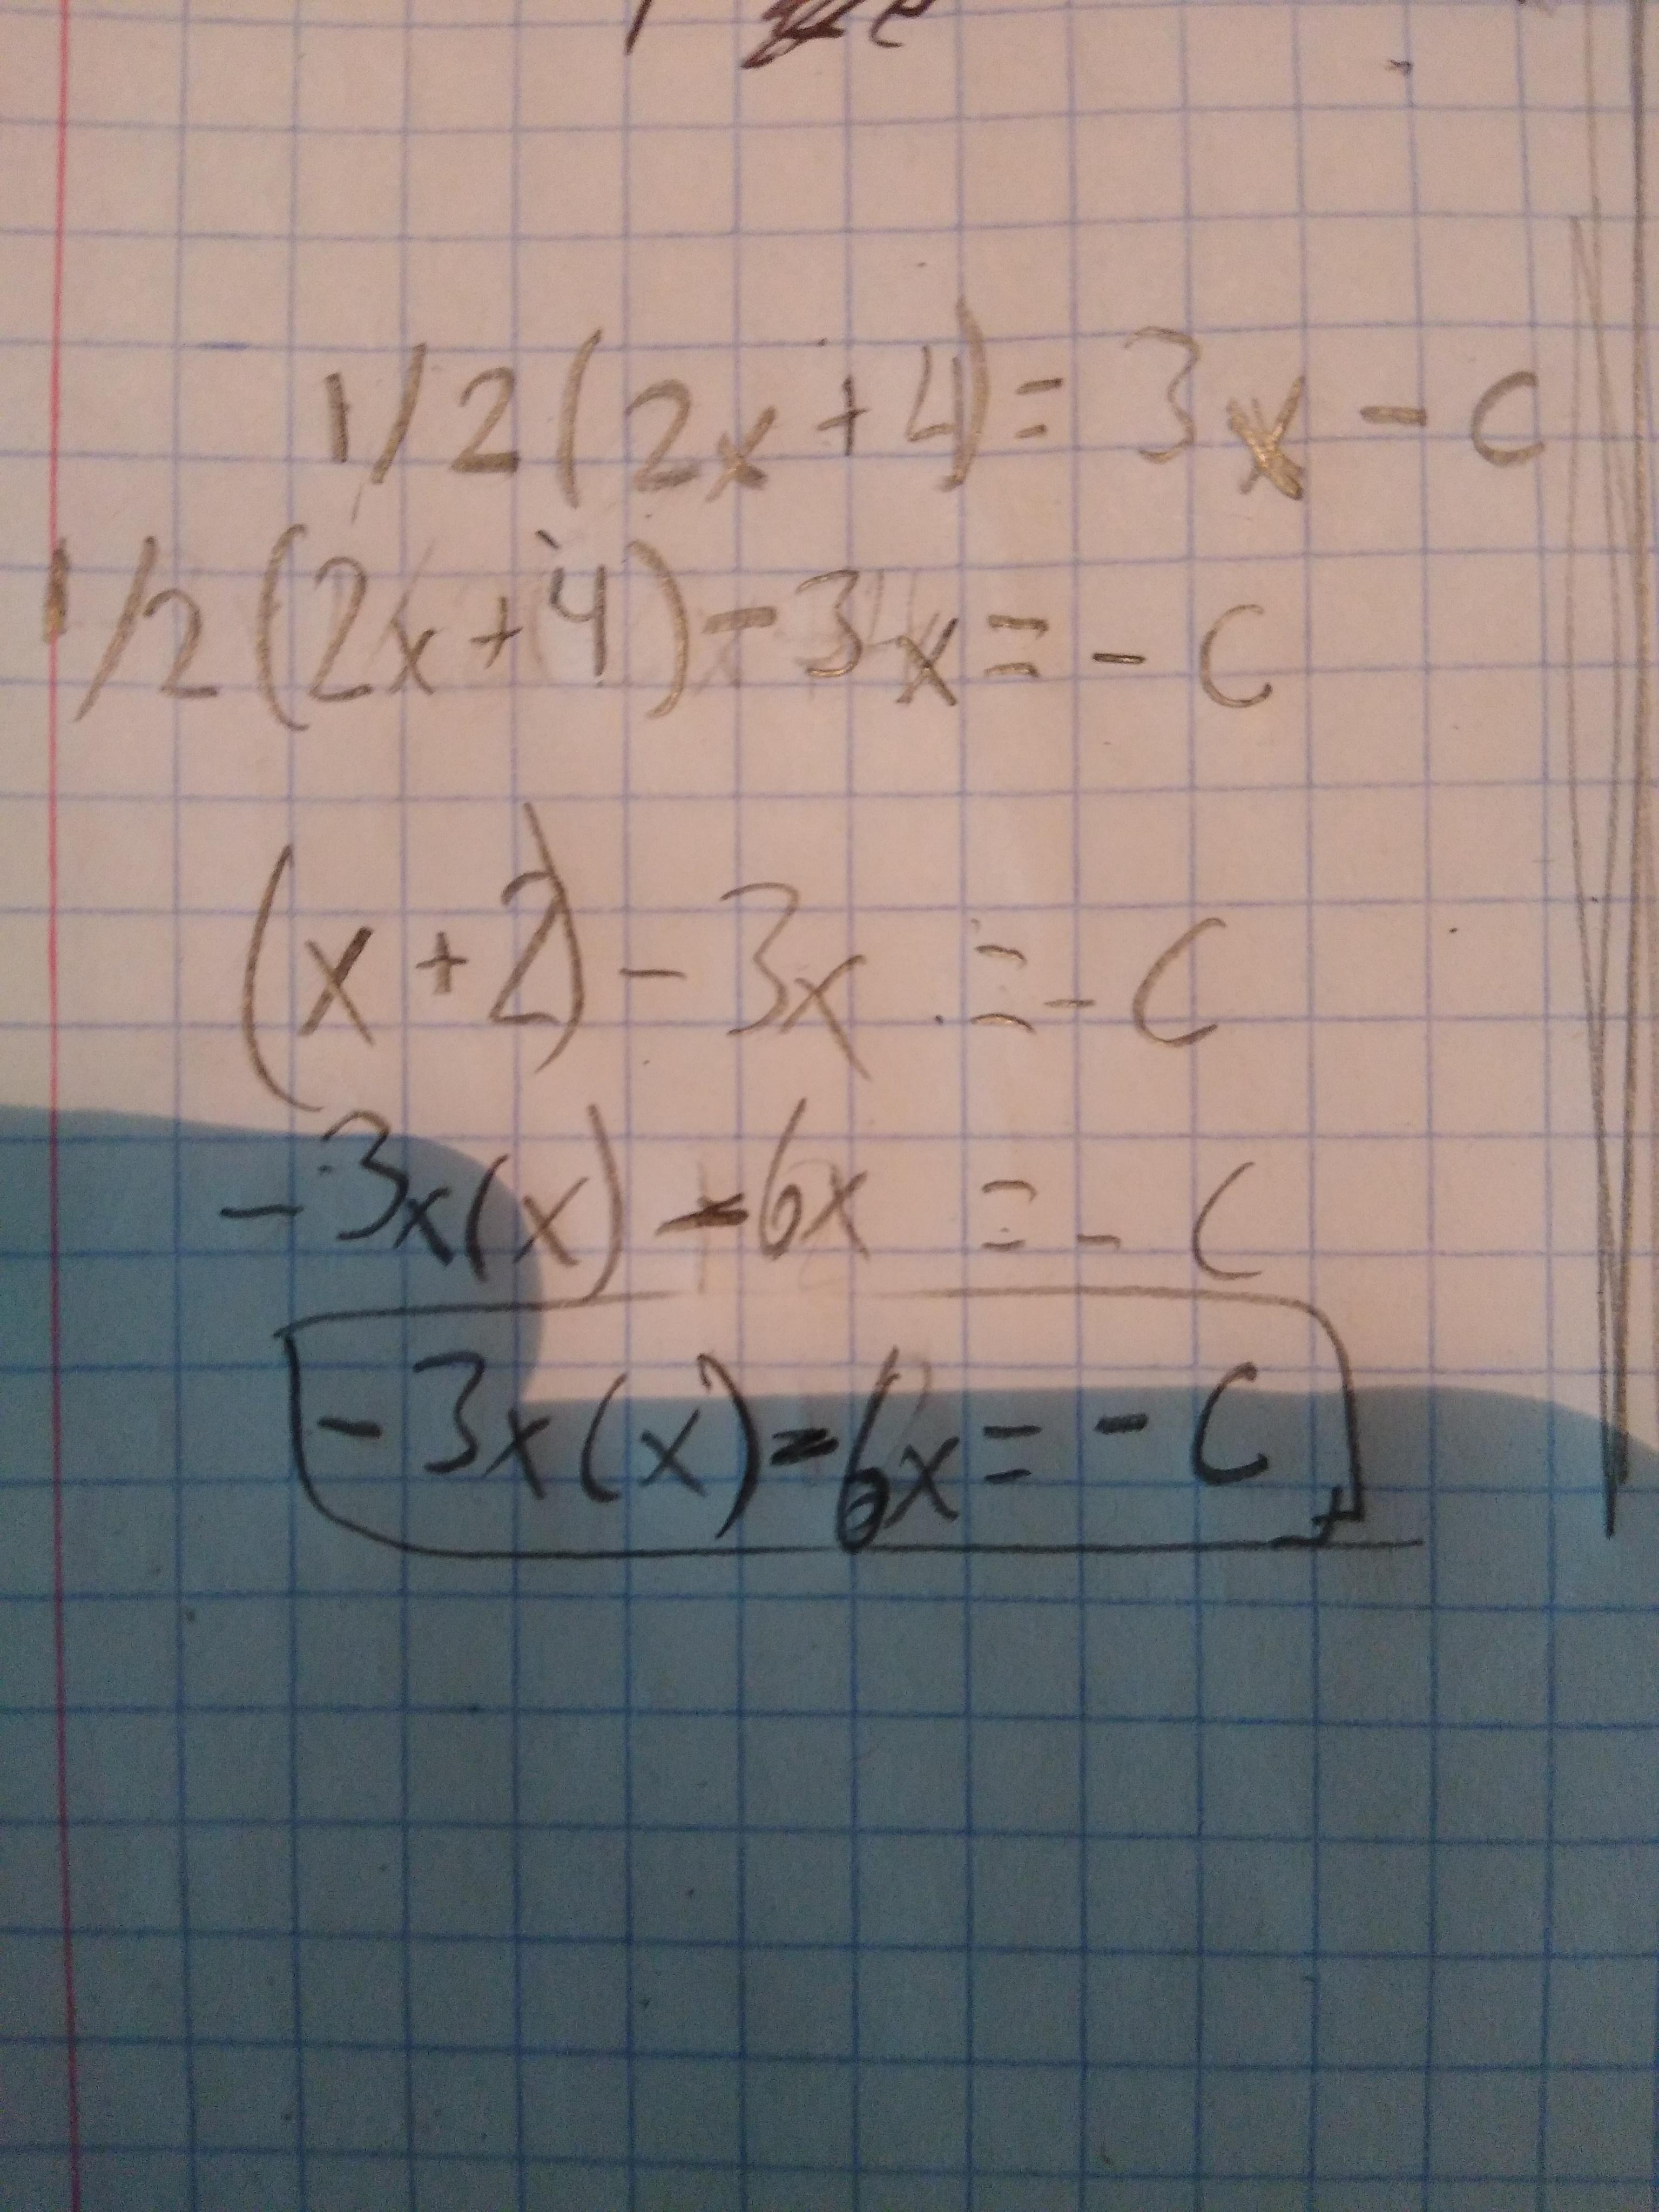 1/2(2x+4)=3x-c
1/2(2x+4)-3x=-c
(x+2)-3x=-c
-3x(x)-6x=-c
-3x(x)-6x=-c